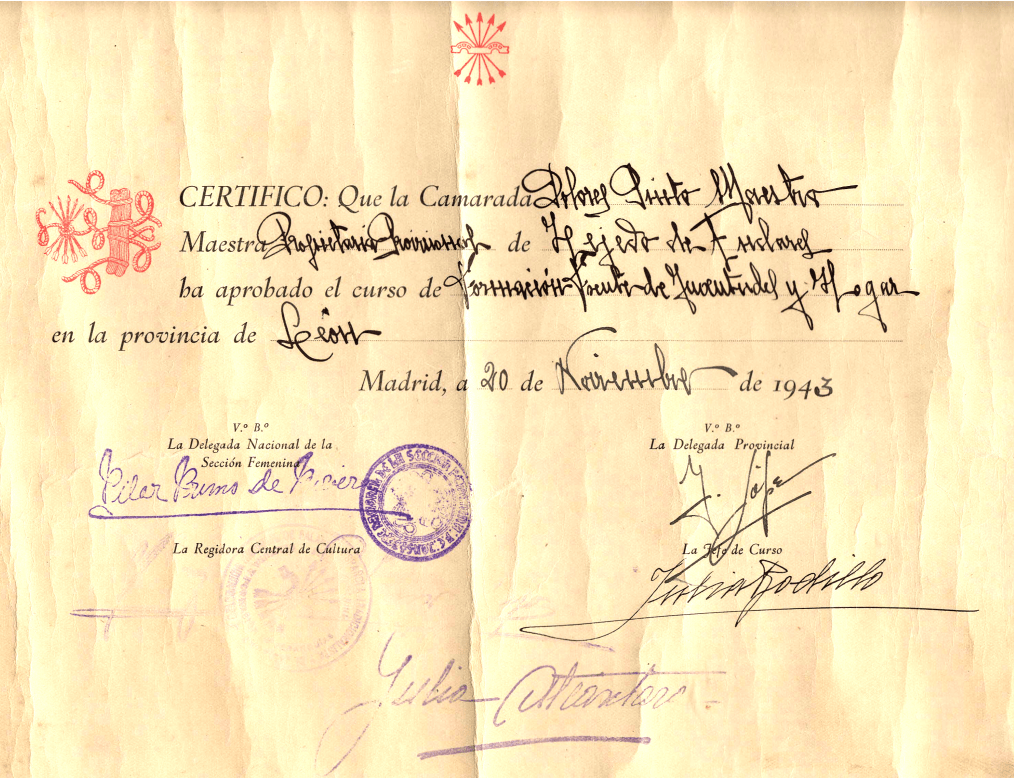 CERTIFICO: Que la Camarada Dolores Prieto Maestro
Maestra Propietaria Provisional de Tejedo de
ha aprobado el curso de Formación Frente de Juventudes y Hogar
en la provincia de León
Madrid, a 20 de Noviembre de 1943
V.º B.º
La Delegada Nacional de la
Sección Femenina
Pilar Primo de Rivera
V.º B.º
La Delegada Provincial
La Regidora Central de Cultura
La Jefe de Curso
Julia Alcántara